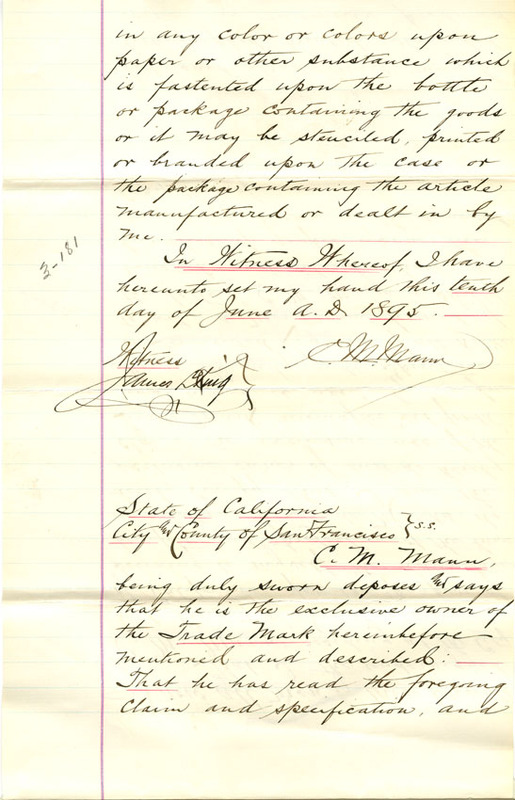 in any color or colors upon
paper or other substance which
is fastented upon the bottle
or package containing the goods
or it may be stenciled, printed
or branded upon the case or
the package containing the article
manufactured or dealt in by
me.
3-181
In Witness Whereof, I have
hereunto set my hand this tenth
day of June A.D. 1895.
Witness
James L. King
C. M. Mann
State of California
City and County of San Francisco } s.s.
C. M. Mann,
being duly sworn deposes and says
that he is the exclusive owner of
the Trade Mark hereinbefore
mentioned and described:
That he has read the foregoing
claim and specification, and